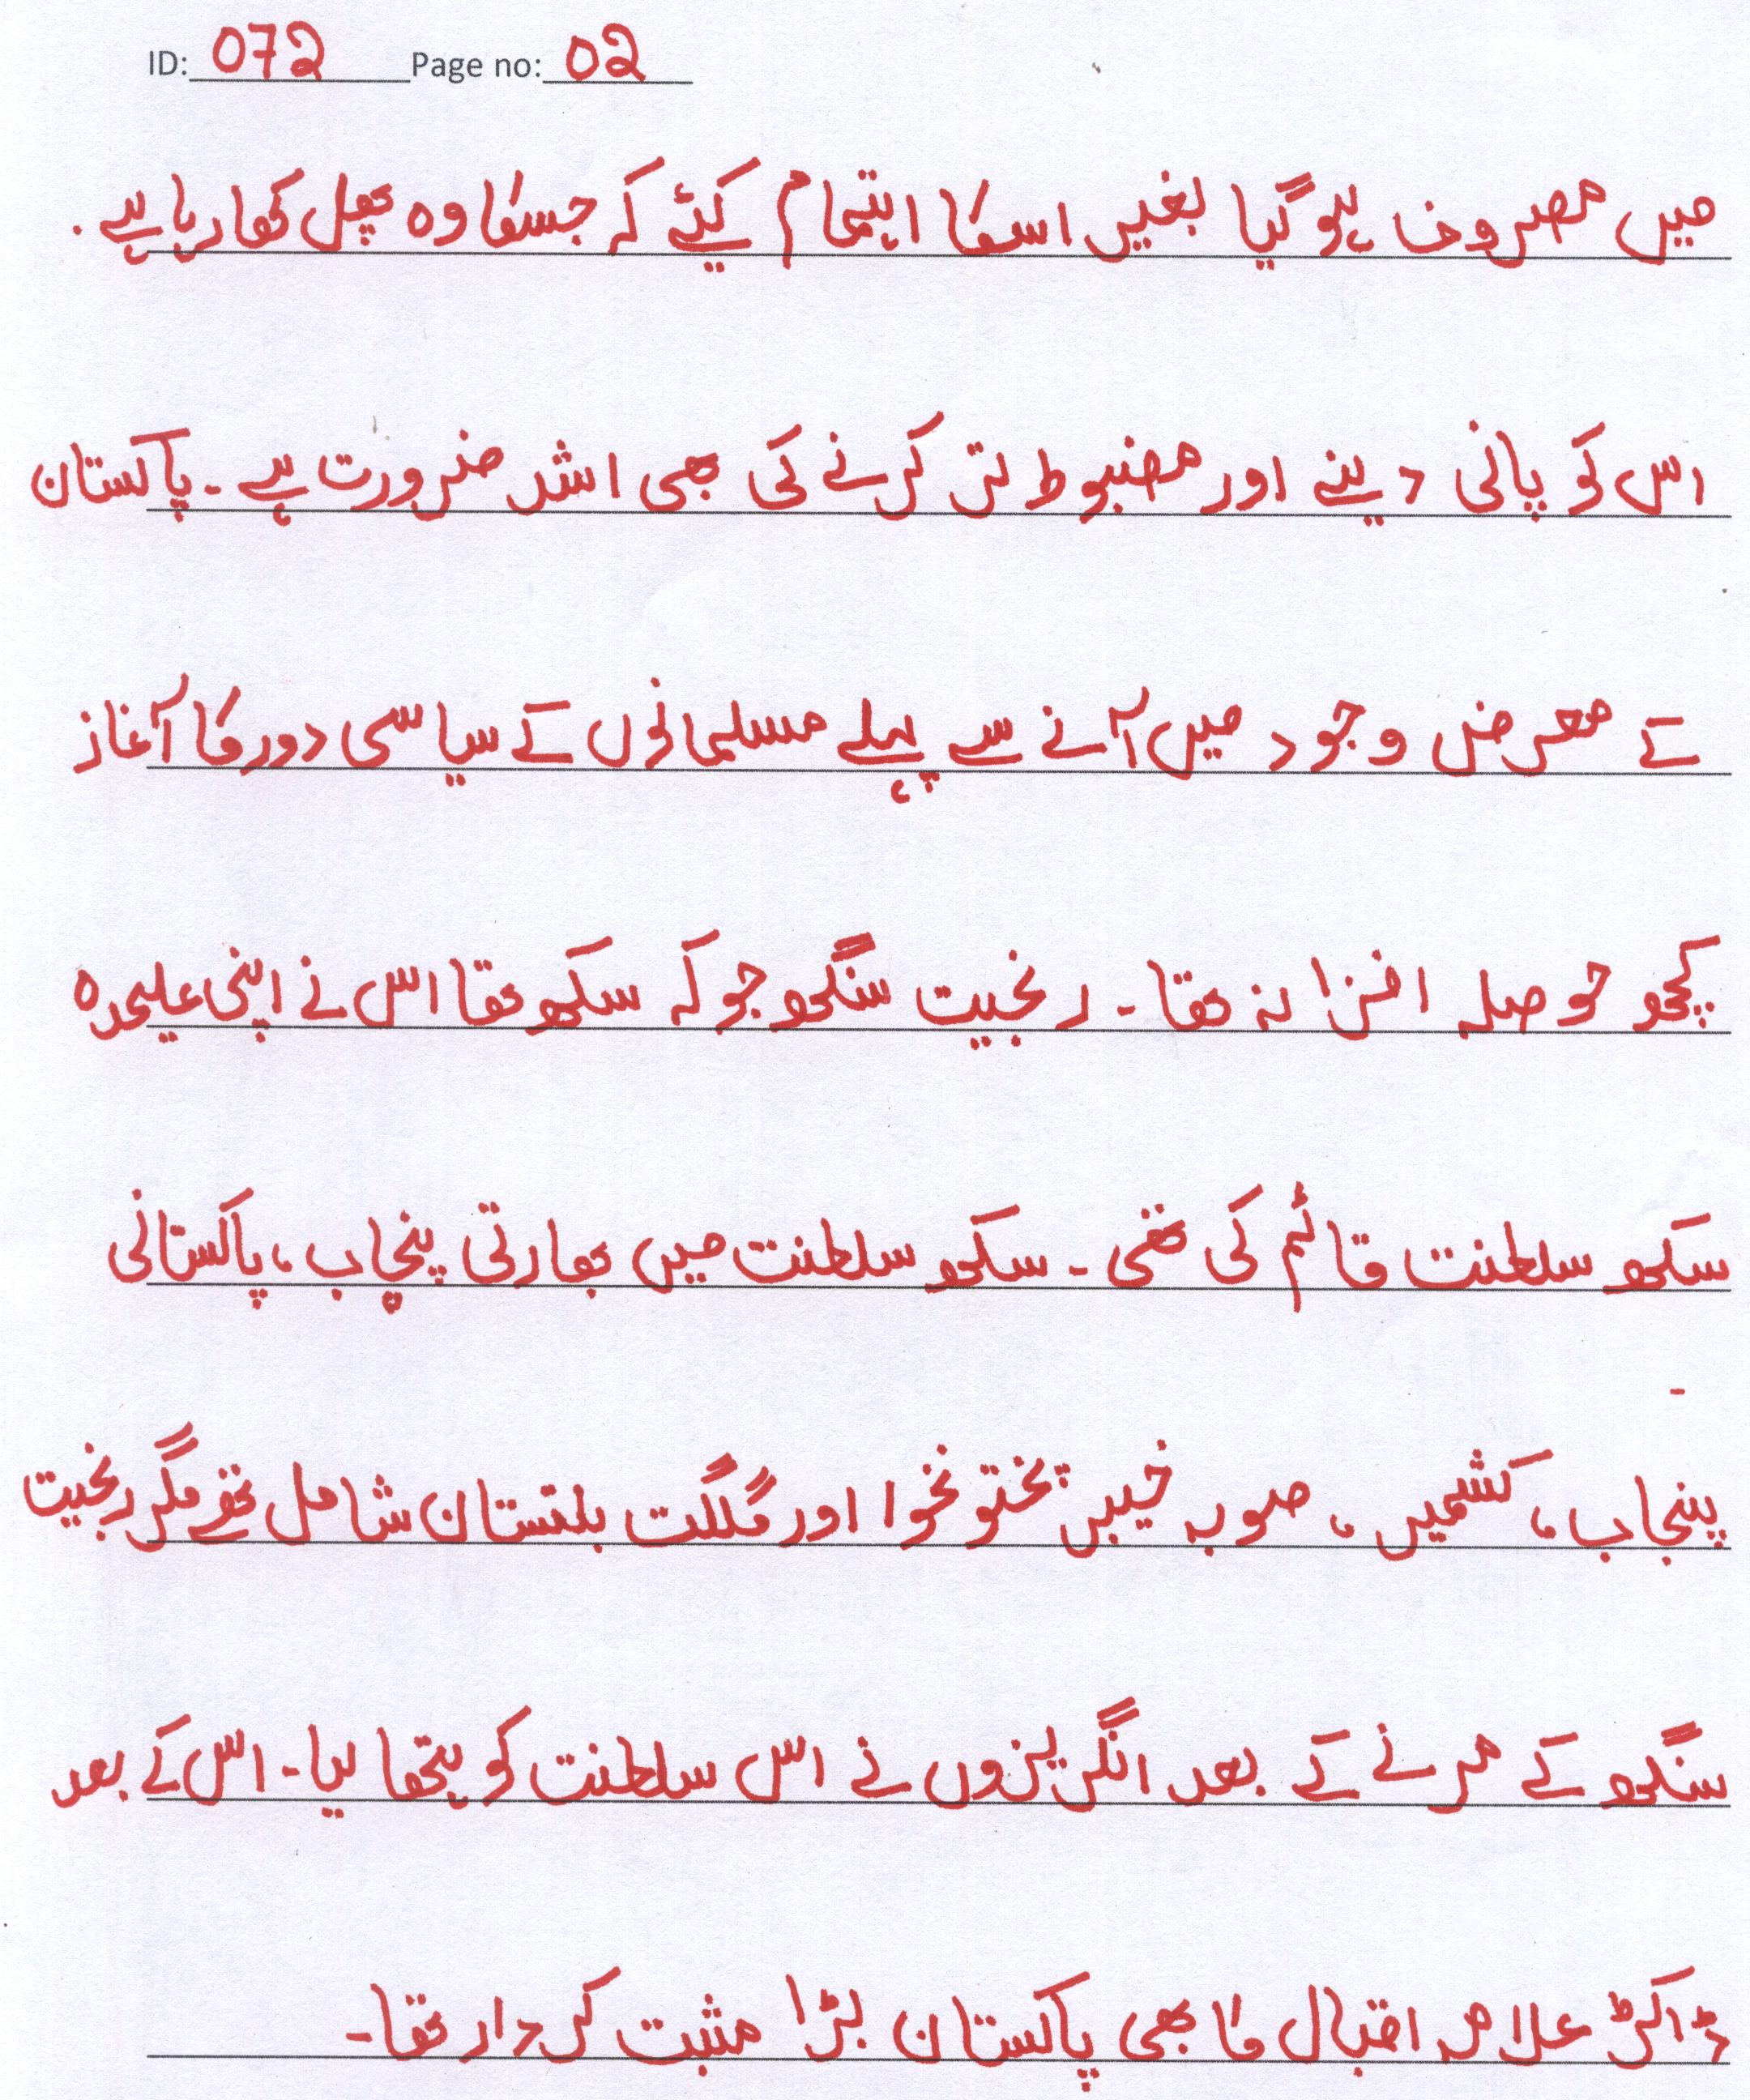 ID: 072 Page no: 02
میں مصروف ہو گیا بغیر اسکا اہتمام کیئے کہ جسکا وہ پھل کھا رہا ہے۔
اس کو پانی دینے اور مضبوط تر کرنے کی بھی اشد ضرورت ہے۔ پاکستان
کے معرض وجود میں آنے سے پہلے مسلمانوں کے سیاسی دور کا آغاز
کچھ حوصلہ افزا نہ تھا۔ رنجیت سنگھ جو کہ سکھ تھا اس نے اپنی علیحدہ
سکھ سلطنت قائم کی تھی۔ سکھ سلطنت میں بھارتی پنجاب، پاکستانی
پنجاب، کشمیر، صوبہ خیبر پختونخوا اور گلگت بلتستان شامل تھے مگر رنجیت
سنگھ کے مرنے کے بعد انگریزوں نے اس سلطنت کو ہتھیا لیا۔ اس کے بعد
ڈاکٹر علامہ اقبال کا بھی پاکستان بڑا مثبت کردار تھا۔